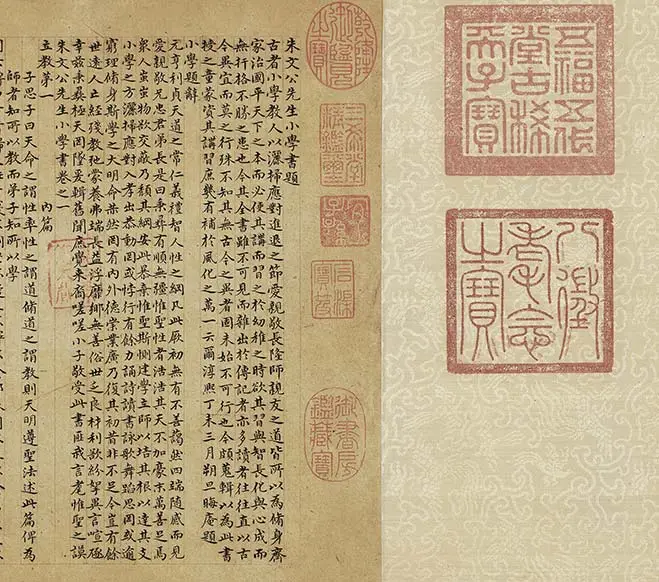 五福五代堂古稀天子寶
八徵耄念之寶
乾隆御覽之寶
三希堂精鑑璽
宜子孫
石渠寶笈
御書房鑑藏寶
朱文公先生小學書題
古者小學教人以灑掃應對進退之節愛親敬長隆師親友之道皆所以為脩身齊
家治國平天下之本而必使其講而習之於幼稚之時欲其習與智長化與心成而
無扞格不勝之患也今其全書雖不可見而雜出於傳記者亦多讀者往往直以古
今異宜而莫之行殊不知其無古今之異者固未始不可行也今頗蒐輯以為此書
授之童蒙資其講習庶幾有補於風化之萬一云爾淳熙丁未三月朔旦晦庵題
小學題辭
元亨利貞天道之常仁義禮智人性之綱凡此厥初無有不善藹然四端隨感而見
愛親敬兄忠君弟長是曰秉彝有順無彊惟聖性者浩浩其天不加毫末萬善足焉
衆人蚩蚩物欲交蔽乃頹其綱安此暴棄惟聖斯惻建學立師以培其根以達其支
小學之方灑掃應對入孝出恭動罔或悖行有餘力誦詩讀書詠歌舞蹈思罔或逾
窮理脩身斯學之大明命赫然罔有內外德崇業廣乃復其初昔非不足今豈有餘
世遠人亡經殘教弛蒙養弗端長益浮靡鄉無善俗世乏良材利欲紛挐異言喧豗
幸茲秉彝極天罔墜爰輯舊聞庶覺來裔嗟嗟小子敬受此書匪我言耄惟聖之謨
朱文公先生小學書卷之一
立教第一 內篇
子思子曰天命之謂性率性之謂道脩道之謂教則天明遵聖法述此篇俾為
師者知所以教而弟子知所以學